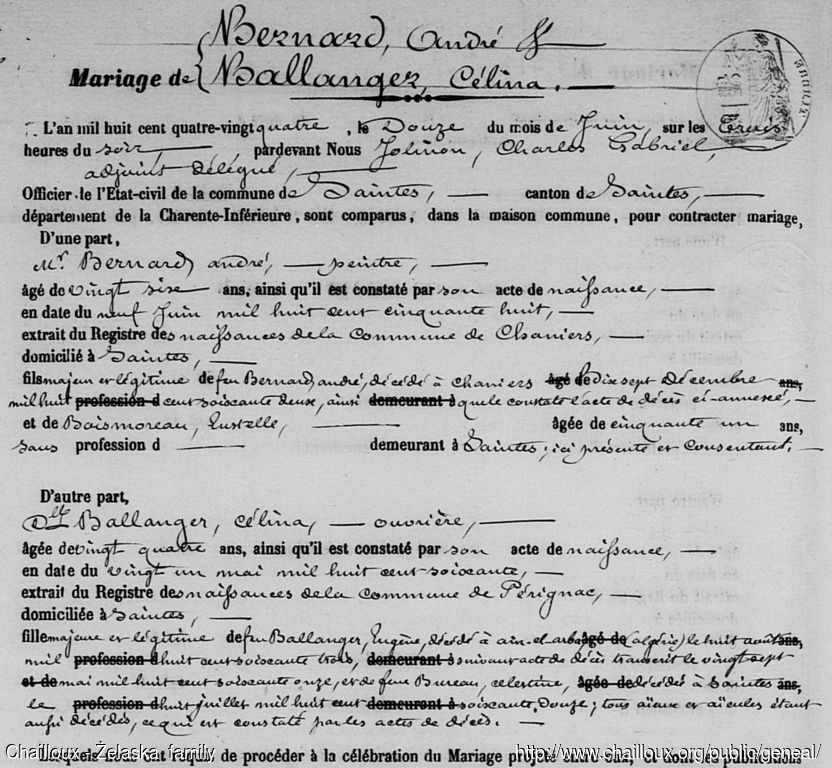 Bernard, André &
Mariage de Ballanger, Célina.
L'an mil huit cent quatre-vingt quatre, le Douze du mois de Juin, sur les trois
heures du soir, pardevant Nous Jolinon, Charles Gabriel,
adjoint délégué,
Officier de l'Etat-civil de la commune de Saintes, canton de Saintes,
département de la Charente-Inférieure, sont comparus, dans la maison commune, pour contracter mariage,
D'une part,
Mr Bernard andré, peintre,
âgé de vingt six ans, ainsi qu'il est constaté par son acte de naissance,
en date du neuf Juin mil huit cent cinquante huit,
extrait du Registre des naissances de la Commune de Chaniers,
domicilié à Saintes,
fils majeur et légitime de feu Bernard andré, décédé à Chaniers âgé de le dix sept Décembre ans,
mil huit profession d cent soixante deux, ainsi demeurant à que le constate l'acte de décès ci-annexé,
et de Boismoreau, Eustelle, âgée de cinquante un ans,
sans profession d demeurant à Saintes; ici présente et consentant.
D'autre part,
Dlle Ballanger, Célina, ouvrière,
âgée de vingt quatre ans, ainsi qu'il est constaté par son acte de naissance,
en date du vingt un mai mil huit cent soixante,
extrait du Registre des naissances de la commune de Pérignac,
domiciliée à Saintes,
fille majeure et légitime de feu Ballanger, Eugène, décédé à ain-el-arba âgé de (algérie) le huit août ans,
mil profession d huit cent soixante trois, demeurant à suivant acte de décès transcrit le vingt sept
et de mai mil huit cent soixante onze, et de feue Bureau, celestine, âgée de décédée à Saintes ans,
le profession d huit juillet mil huit cent demeurant à soixante Douze; tous aïeux et aïeules étant
aussi décédés, ce qui est constaté par les actes de décès.
Lesquels nous ont requis de procéder à la célébration du Mariage projeté entre eux, et dont les publications
Chailloux - Żelaska family
http://www.chailloux.org/public/geneal/